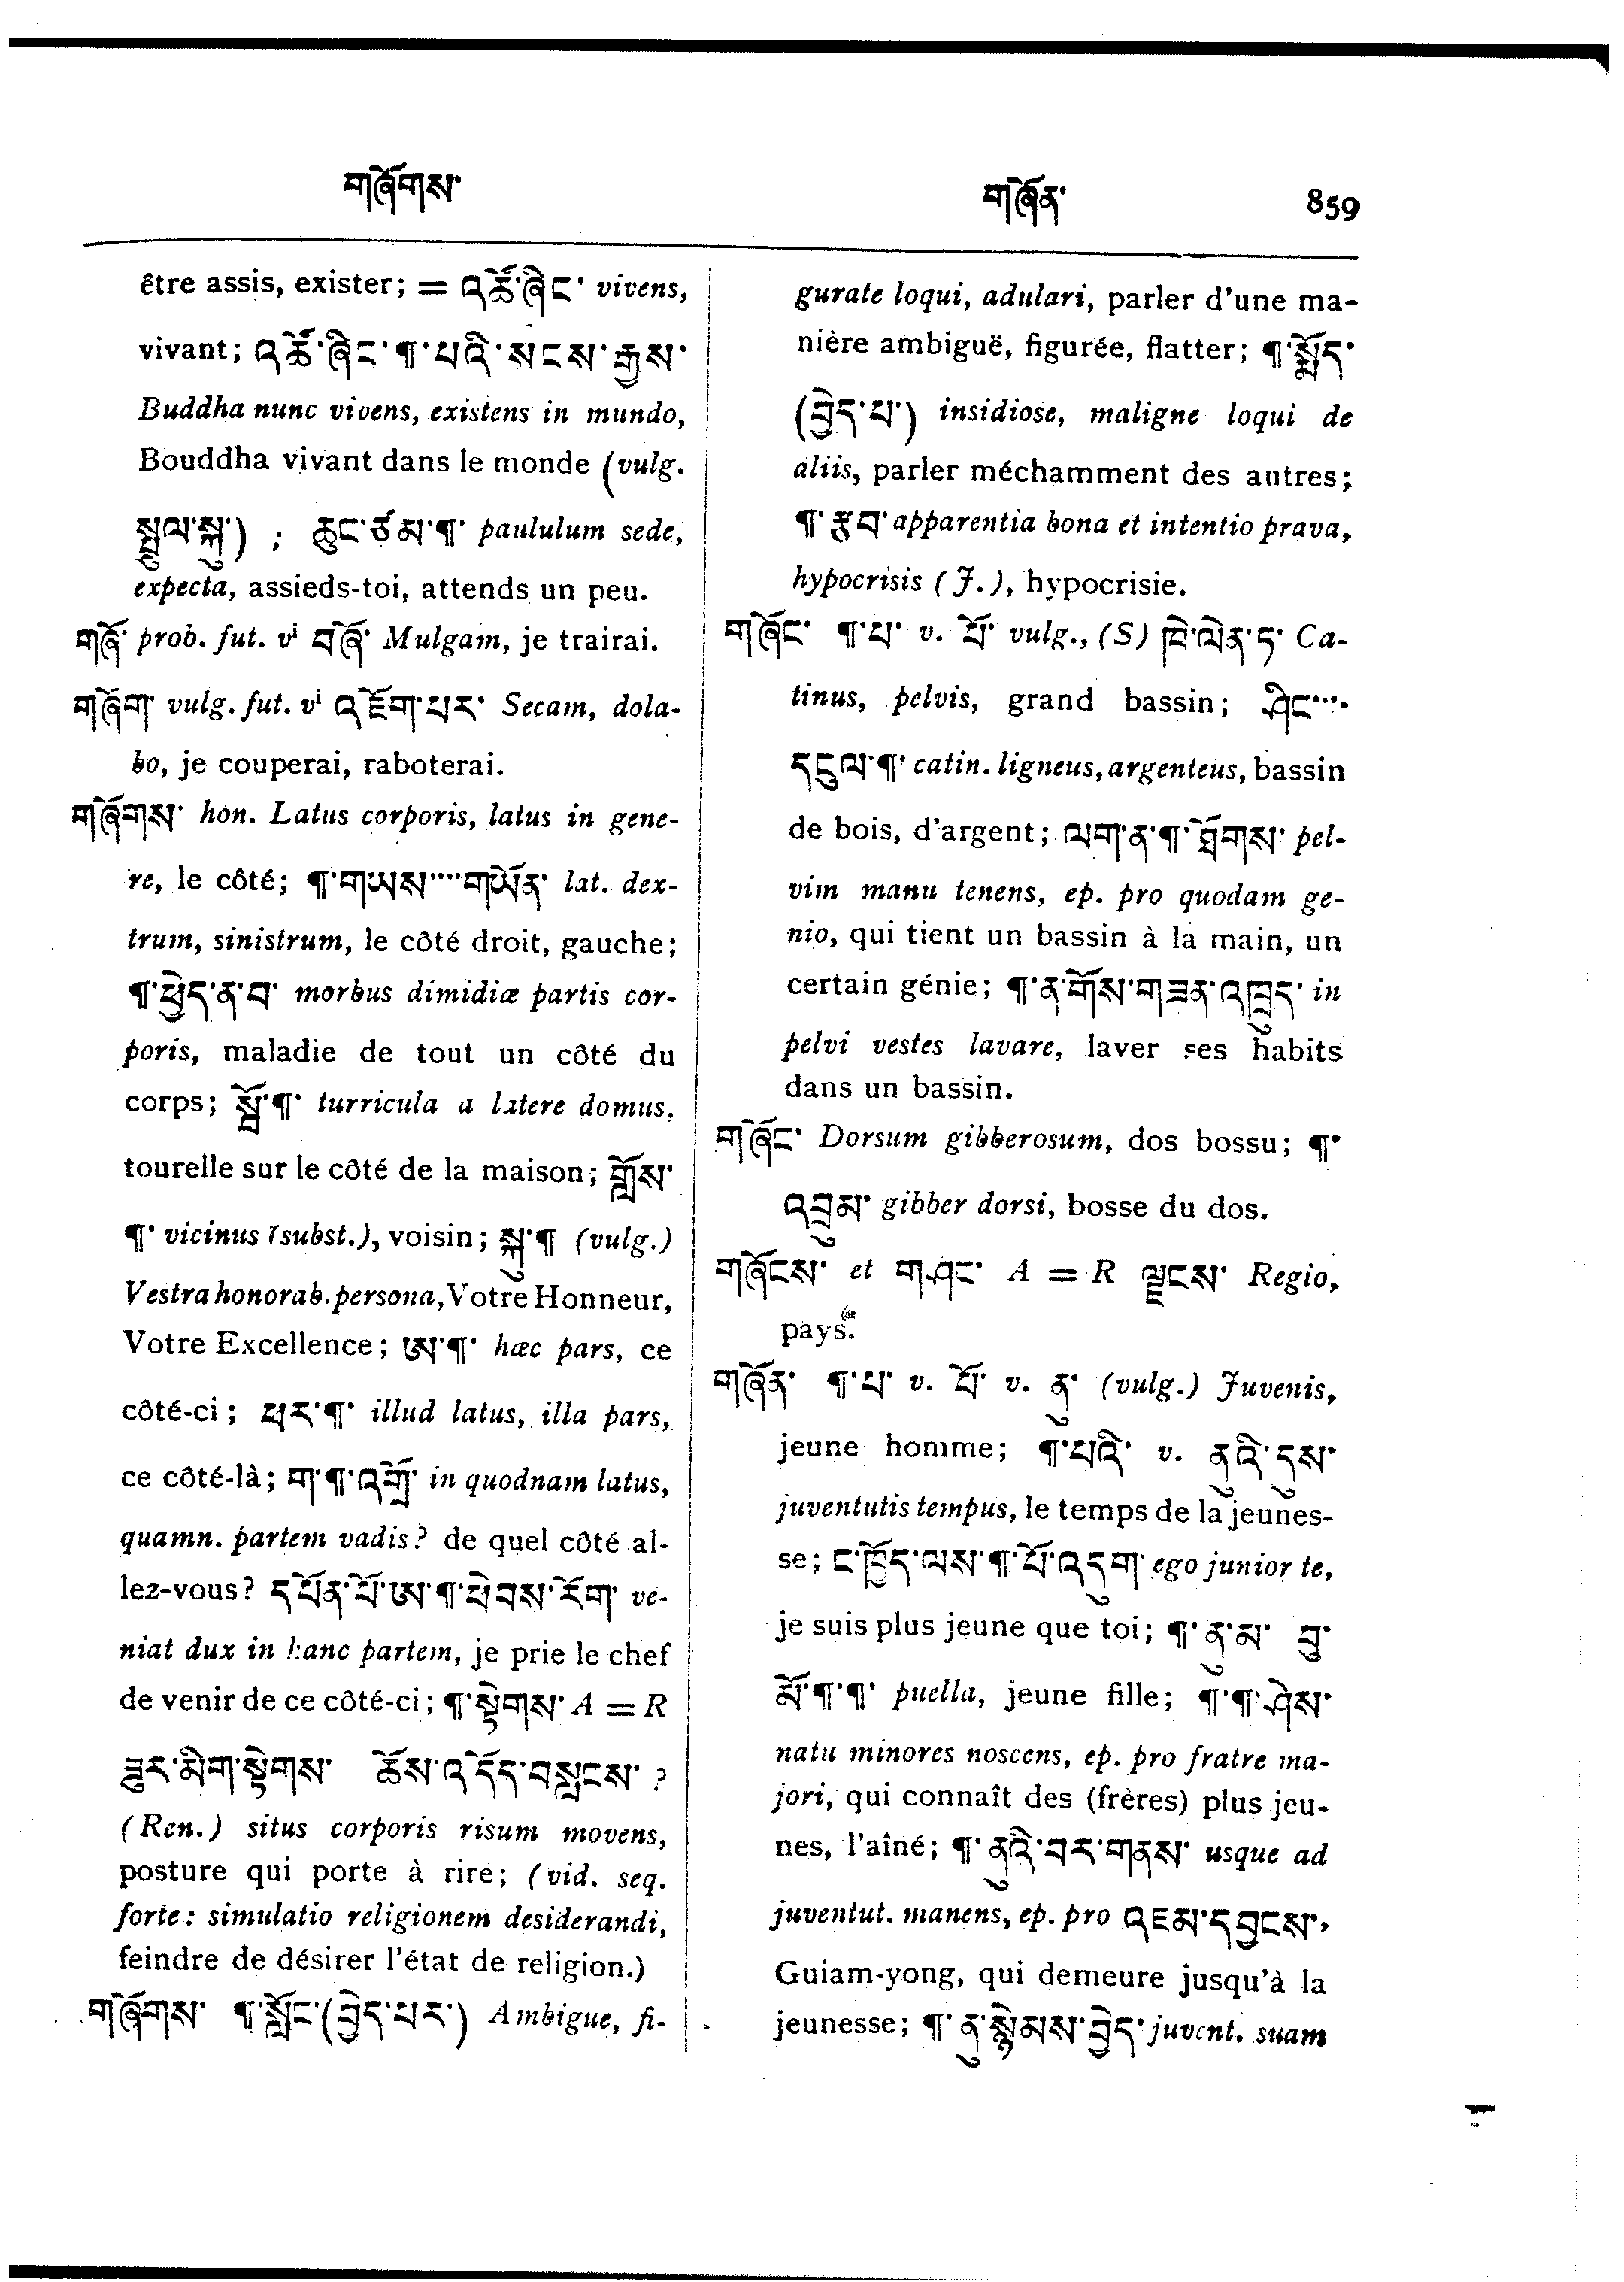 གཞོགས་
གཞོན་ 859
être assis, exister; = འཚོ་ཞིང་ vivens,
vivant; འཚོ་ཞིང་¶་པའི་སངས་རྒྱས་
Buddha nunc vivens, existens in mundo,
Bouddha vivant dans le monde (vulg.
སྤྲུལ་སྐུ་) ; ཆུང་ཙམ་¶་ paululum sede,
expecta, assieds-toi, attends un peu.
གཞོ་ prob. fut. vⁱ བཞོ་ Mulgam, je trairai.
གཞོག་ vulg. fut. vⁱ འཇོག་པར་ Secam, dola-
bo, je couperai, raboterai.
གཞོགས་ hon. Latus corporis, latus in gene-
re, le côté; ¶་གཡས་····གཡོན་ lat. dex-
trum, sinistrum, le côté droit, gauche;
¶་ཕྱེད་ན་བ་ morbus dimidiæ partis cor-
poris, maladie de tout un côté du
corps; སློ་¶་ turricula a latere domus,
tourelle sur le côté de la maison; གློས་
¶་ vicinus (subst.), voisin; སྐུ་¶ (vulg.)
Vestra honorab. persona, Votre Honneur,
Votre Excellence; ཨ་¶་ hæc pars, ce
côté-ci; ཕར་¶་ illud latus, illa pars,
ce côté-là; ག་¶་འགྲོ་ in quodnam latus,
quamn. partem vadis? de quel côté al-
lez-vous? དཔོན་པོ་ཨ་¶་ཕེབས་རོག་ ve-
niat dux in hanc partem, je prie le chef
de venir de ce côté-ci; ¶་སྟེགས་ A = R
ཟུར་མིག་སྟེགས་ ཆོས་འདོད་བསླངས་ ?
(Ren.) situs corporis risum movens,
posture qui porte à rire; (vid. seq.
forte: simulatio religionem desiderandi,
feindre de désirer l'état de religion.)
གཞོགས་ ¶་སློང་(བྱེད་པར་) Ambigue, fi-
gurate loqui, adulari, parler d'une ma-
nière ambiguë, figurée, flatter; ¶་སྨོད་
(བྱེད་པ་) insidiose, maligne loqui de
aliis, parler méchamment des autres;
¶་ རྩུབ་ apparentia bona et intentio prava,
hypocrisis (J.), hypocrisie.
གཞོང་ ¶་པ་ v. པོ་ vulg., (S) ཁེ་ལེན་ད་ Ca-
tinus, pelvis, grand bassin; ཤིང་····
དངུལ་¶་ catin. ligneus, argenteus, bassin
de bois, d'argent; ལག་ན་¶་ཐོགས་ pel-
vim manu tenens, ep. pro quodam ge-
nio, qui tient un bassin à la main, un
certain génie; ¶་ན་གོས་གཟན་འཁྲུད་ in
pelvi vestes lavare, laver ses habits
dans un bassin.
གཞོང་ Dorsum gibberosum, dos bossu; ¶་
འབྲུམ་ gibber dorsi, bosse du dos.
གཞོངས་ et གཤང་ A = R ལྗངས་ Regio,
pays.
གཞོན་ ¶་པ་ v. པོ་ v. ནུ་ (vulg.) Juvenis,
jeune homme; ¶་པའི་ v. ནུའི་དུས་
juventutis tempus, le temps de la jeunes-
se; ང་ཁྱོད་ལས་¶་པོ་འདུག་ ego junior te,
je suis plus jeune que toi; ¶་ནུ་མ་ བུ་
མོ་¶་¶་ puella, jeune fille; ¶་¶་ཤེས་
natu minores noscens, ep. pro fratre ma-
jori, qui connaît des (frères) plus jeu-
nes, l'aîné; ¶་ནུའི་བར་གནས་ usque ad
juventut. manens, ep. pro འཇམ་དབྱངས་,
Guiam-yong, qui demeure jusqu'à la
jeunesse; ¶་ནུ་སྙེམས་བྱེད་ juvent. suam